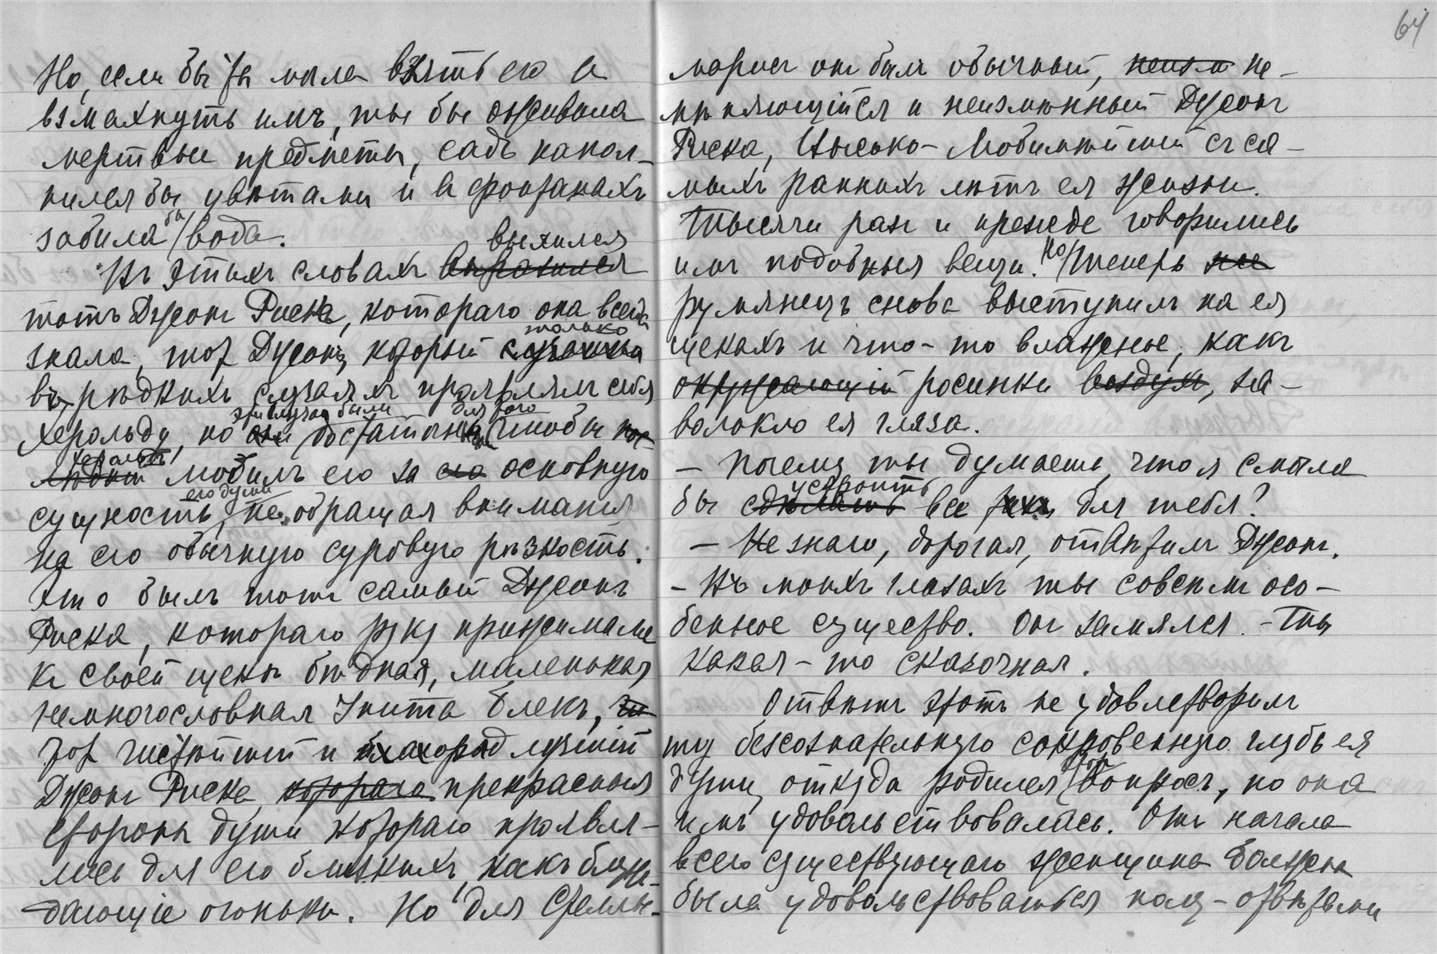 64
Но, если бы ты могла взять его и
взмахнуть имъ, ты бы оживила
мертвые предметы, садъ напол-
нился бы цвѣтами и въ фонтанахъ
забила бы вода.
Въ этихъ словахъ выразился вылился
тотъ Джонъ Риска, котораго она всегда
знала, тотъ Джонъ, который только
въ рѣдкихъ случаяхъ проявлялъ себя
Херольду, но они эти случаи были достаточны для того чтобы
Херольдъ любилъ его за его основную
сущность его души, не обращая вниманія
на его обычную суровую рѣзкость.
Это былъ тотъ самый Джонъ
Риска, котораго руку прижимала
къ своей щекѣ бѣдная, маленькая
немногословная Унита Блекъ,
тотъ чистѣйшій и лучшій
Джонъ Риска, котораго прекрасныя
стороны души котораго проявля-
лись для его близкихъ, какъ блуж-
дающіе огоньки. Но для Стеллы-
Марисъ онъ былъ обычный, неизм не-
мѣняющійся и неизмѣнный Джонъ
Риска, Высоко-Любимѣйшій съ са-
мыхъ раннихъ лѣтъ ея жизни.
Тысячи разъ и прежде говорились
имъ подобныя вещи. Но теперь не
румянецъ снова выступилъ на ея
щекахъ и что-то влажное, какъ
окружающій росинки воздухъ, за-
волокло ея глаза.
— Почему ты думаешь, что я смогла
бы сдѣлать устроить все это для тебя?
— Не знаю, дорогая, отвѣтилъ Джонъ.
— Въ моихъ глазахъ ты совсѣмъ осо-
бенное существо. Онъ замялся. — Ты
какая-то сказочная.
Отвѣтъ этотъ не удовлетворилъ
ту безсознательную сокровенную глубь ея
души, откуда родился этотъ вопросъ, но она
имъ удовольствовалась. Отъ начала
всего существующаго женщина должна
была удовольствоваться полу-отвѣтами